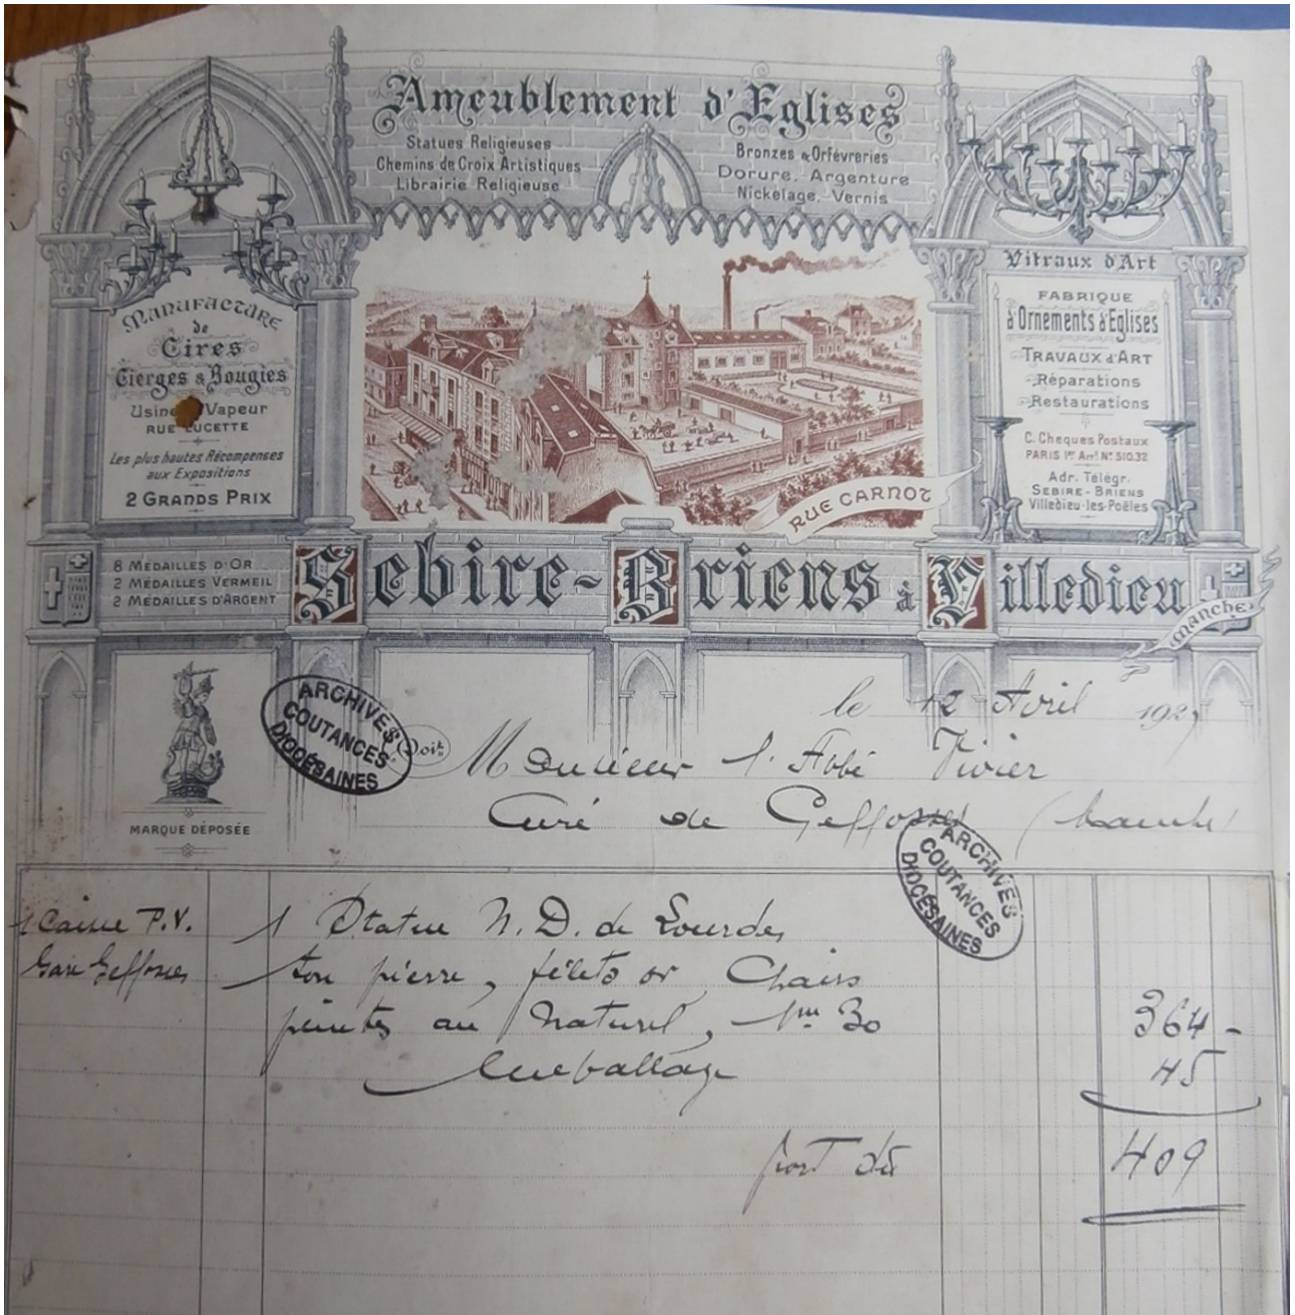 Ameublement d'Eglises
Statues Religieuses
Chemins de Croix Artistiques
Librairie Religieuse
Bronzes & Orfèvreries
Dorure, Argenture
Nickelage, Vernis
MANUFACTURE
de
Cires
Cierges & Bougies
Usine Vapeur
RUE LUCETTE
Les plus hautes Récompenses
aux Expositions
2 GRANDS PRIX
Vitraux d'Art
FABRIQUE
d'Ornements d'Eglises
TRAVAUX d'ART
Réparations
Restaurations
C. Cheques Postaux
PARIS 1er Arrt No 510.32
Adr. Télégr.
SEBIRE-BRIENS
Villedieu-les-Poêles
RUE CARNOT
8 MÉDAILLES D'OR
2 MÉDAILLES VERMEIL
2 MÉDAILLES D'ARGENT
Sebire-Briens à Villedieu
MANCHE
MARQUE DÉPOSÉE
ARCHIVES
COUTANCES
DIOCÉSAINES
le 12 Avril 1927
Doit
Monsieur l'Abbé Vivier
Curé de Geffosses (Manche)
ARCHIVES
COUTANCES
DIOCÉSAINES
1 Caisse P.V.
Gare Geffosses
1 Statue N. D. de Lourdes
ton pierre, filets or, Chairs
peintes au Naturel, 1m 30 364 -
Emballage 45
port dû 409